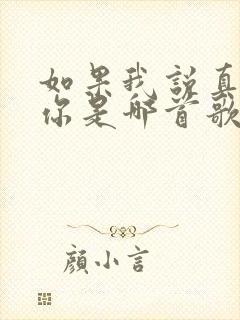 如果我说真
你是哪首歌
颜小言